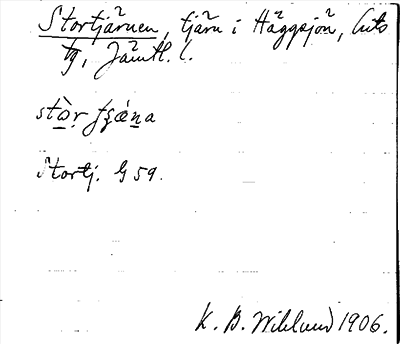 Stortjärnen, tjärn i Häggsjön,
tg, Jämtl. l.
Stortj. G 59.
K. B. Wiklund 1906.